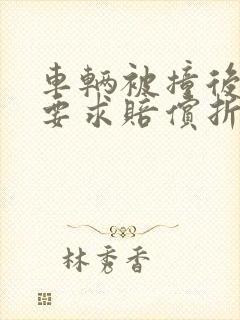 車輛被撞後
要求賠償折
林秀香